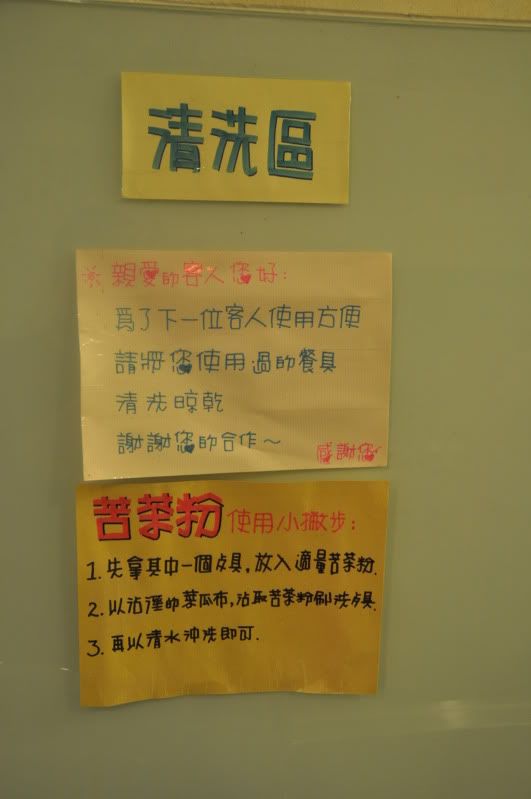 清洗區
※親愛的客人您好:
為了下一位客人使用方便
請將您使用過的餐具
清洗晾乾
謝謝您的合作~
感謝您
苦茶粉使用小撇步:
1. 先拿其中一個皿具,放入適量苦茶粉.
2. 以沾溼的菜瓜布,沾取苦茶粉刷洗皿具.
3. 再以清水沖洗即可.